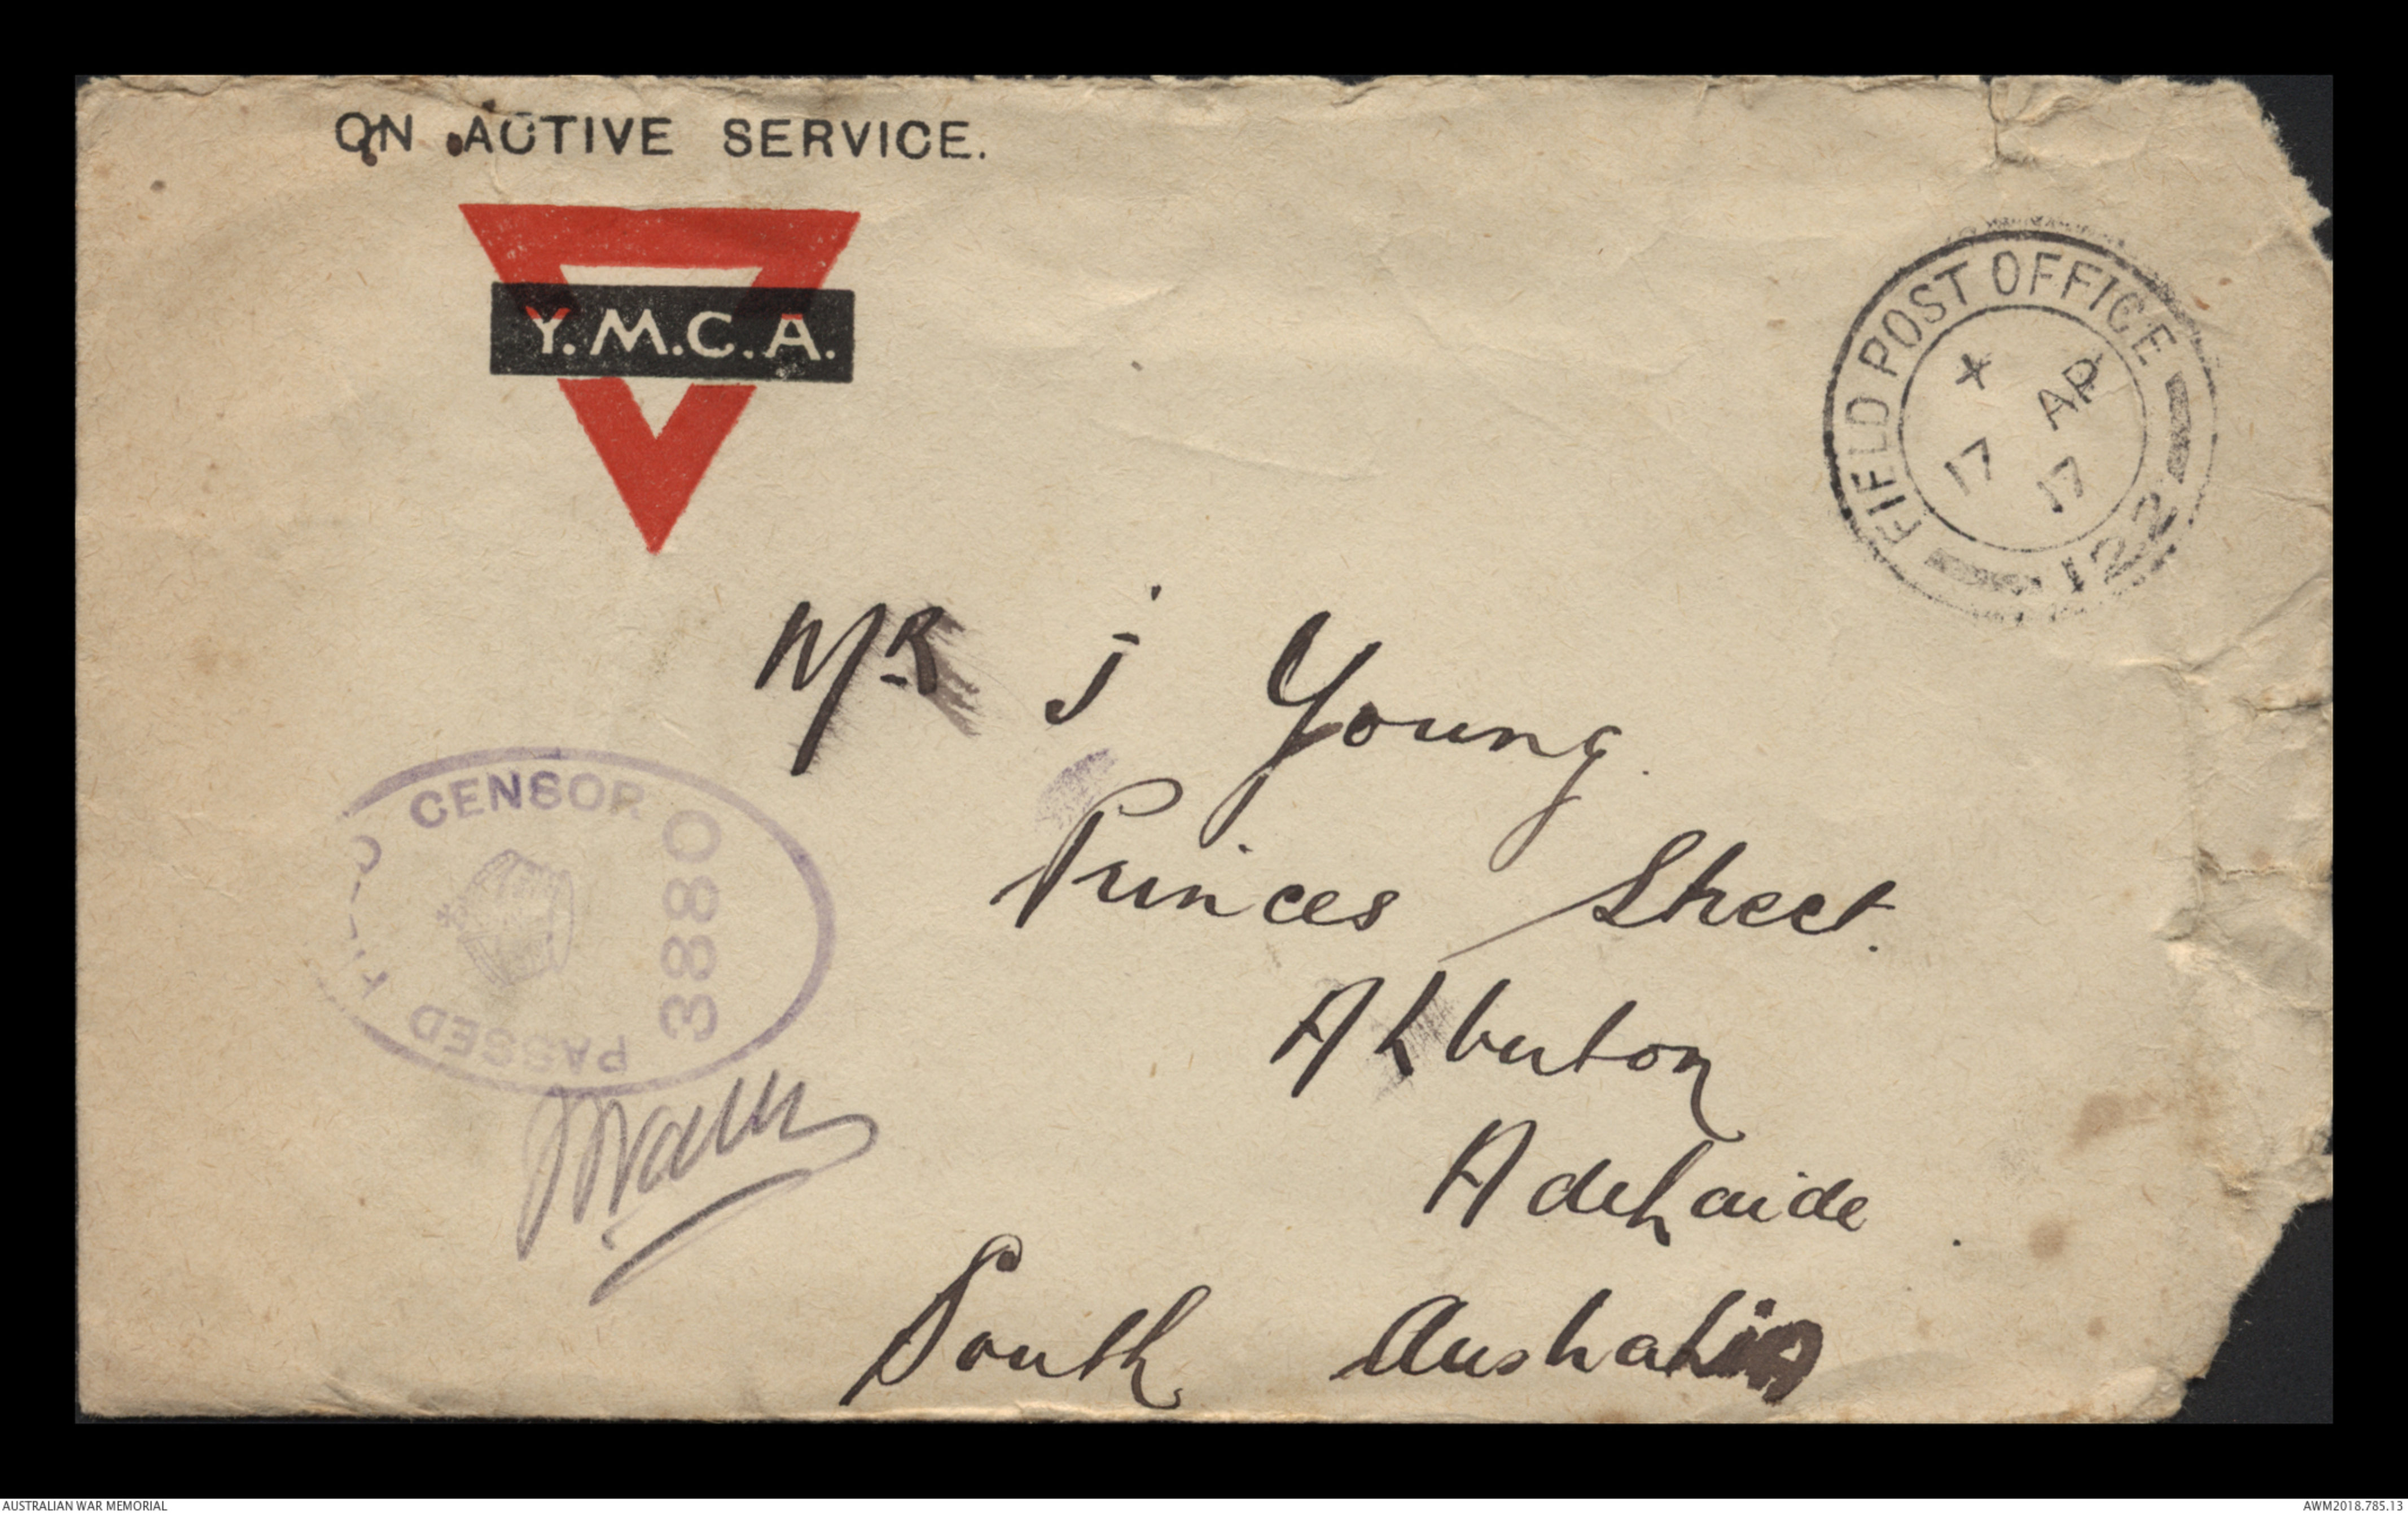 ON ACTIVE SERVICE.
Y.M.C.A.
FIELD POST OFFICE
X AP
17 17
122
Mr J Young.
Princes Street.
Alberton
Adelaide.
South Australia
PASSED CENSOR
3880
AUSTRALIAN WAR MEMORIAL
AWM2018.785.13